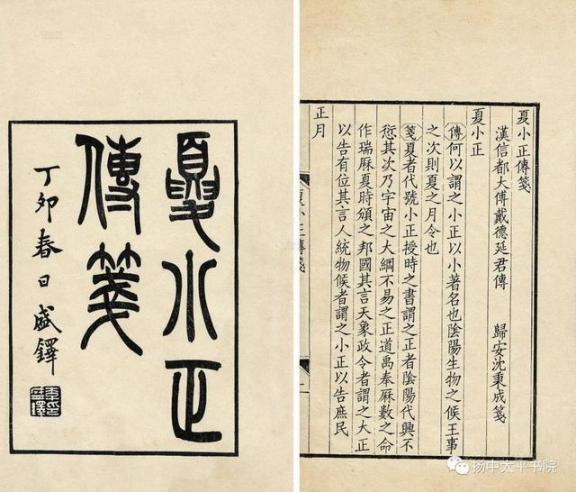 夏小正
傳箋
丁卯春日盛鐸
夏小正傳箋
漢信都大傅戴德延君傳 歸安沈秉成箋
夏小正
傳何以謂之小正以小著名也陰陽生物之候王事
之次則夏之月令也
箋夏者代號小正授時之書謂之正者陰陽代興不
愆其次乃宇宙之大綱不易之正道禹奉厤數之命
作瑞厤夏時頒之邦國其言天象政令者謂之大正
以告有位其言人統物候者謂之小正以告庶民
正月
夏小正傳箋
扬中太平书院